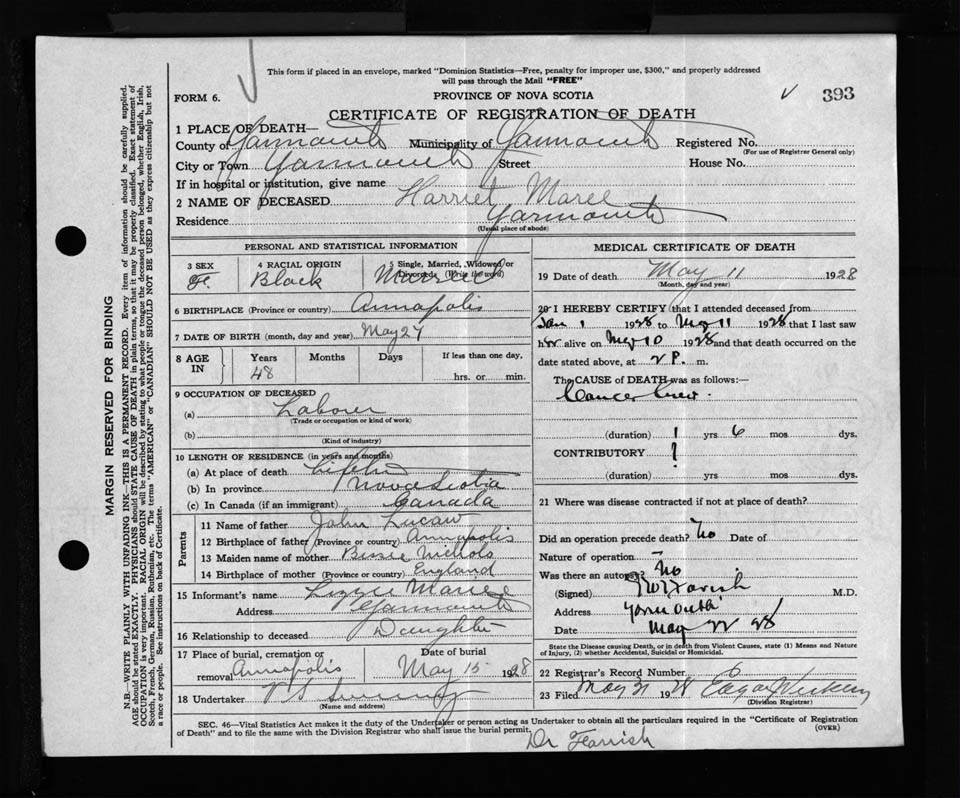 This form if placed in an envelope, marked "Dominion Statistics—Free, penalty for improper use, $300," and properly addressed
will pass through the Mail "FREE"
FORM 6.
PROVINCE OF NOVA SCOTIA
393
CERTIFICATE OF REGISTRATION OF DEATH
1 PLACE OF DEATH—
County of Yarmouth Municipality of Yarmouth Registered No.
(For use of Registrar General only)
City or Town Yarmouth Street House No.
If in hospital or institution, give name
2 NAME OF DECEASED Harriet
Residence Yarmouth
(Usual place of abode)
PERSONAL AND STATISTICAL INFORMATION
3 SEX 4 RACIAL ORIGIN 5 Single, Married, Widowed or Divorced (Write the word)
Fe Black Married
6 BIRTHPLACE (Province or country) Annapolis
7 DATE OF BIRTH (month, day and year) May 27
8 AGE IN Years Months Days If less than one day,
48 hrs. or min.
9 OCCUPATION OF DECEASED
(a) Laborer
(Trade or occupation or kind of work)
(b)
(Kind of industry)
10 LENGTH OF RESIDENCE (in years and months)
(a) At place of death
(b) In province Nova Scotia
(c) In Canada (if an immigrant) Canada
Parents
11 Name of father John
12 Birthplace of father (Province or country) Annapolis
13 Maiden name of mother
14 Birthplace of mother (Province or country) England
15 Informant's name Lizzie
Address Yarmouth
16 Relationship to deceased Daughter
17 Place of burial, cremation or removal Annapolis Date of burial May 15 1928
18 Undertaker
(Name and address)
MEDICAL CERTIFICATE OF DEATH
19 Date of death May 11 1928
(Month, day and year)
20 I HEREBY CERTIFY (that I attended deceased from
Jan 1 1928 to May 11 1928 that I last saw
her alive on May 10 1928 and that death occurred on the
date stated above, at 2 P. m.
The CAUSE of DEATH was as follows:—
Cancer
(duration) 1 yrs 6 mos dys.
CONTRIBUTORY ?
(duration) yrs. mos. dys.
21 Where was disease contracted if not at place of death?
Did an operation precede death? No Date of
Nature of operation
Was there an autopsy? No
(Signed) M.D.
Address Yarmouth
Date May 22 28
State the Disease causing Death, or in death from Violent Causes, state (1) Means and Nature
of Injury, (2) whether Accidental, Suicidal or Homicidal.
22 Record Number 6
23 Filed May 31 1928
(Division Registrar)
SEC. 46—Vital Statistics Act makes it the duty of the Undertaker or person acting as Undertaker to obtain all the particulars required in the "Certificate of Registration
of Death" and to file the same with the Division Registrar who shall issue the burial permit.
(OVER)
Dr
MARGIN RESERVED FOR BINDING
N.B.—WRITE PLAINLY WITH UNFADING INK—THIS IS A PERMANENT RECORD. Every item of information should be carefully supplied.
AGE should be stated EXACTLY. PHYSICIANS should STATE CAUSE OF DEATH in plain terms, so that it may be properly classified. Exact statement of
OCCUPATION is very important. RACIAL ORIGIN will be described by stating to what people or tongue the deceased person belonged, whether English, Irish,
Scotch, French, German, Russian, Ruthenian, etc. The terms "AMERICAN" or "CANADIAN" SHOULD NOT BE USED as they express citizenship but not
a race or people. See instructions on back of Certificate.